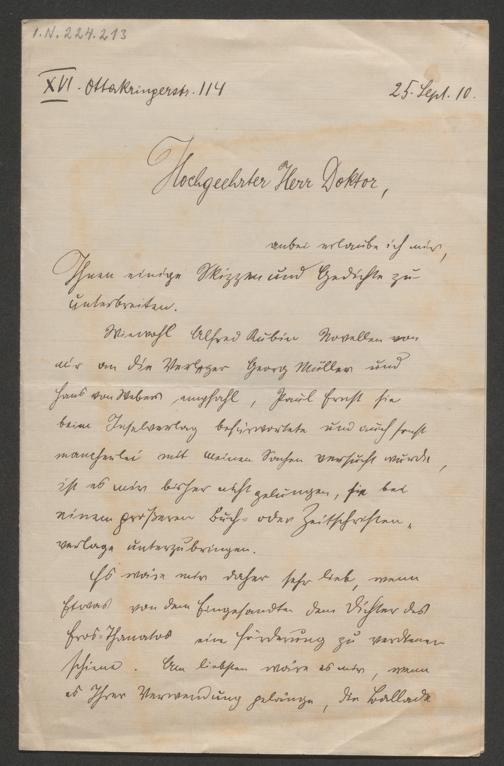 I.N. 224.213
XVI. Ottakringerstr. 114 25. Sept. 10.
Hochgeehrter Herr Doktor,
anbei erlaube ich mir,
Ihnen einige Skizzen und Gedichte zu
unterbreiten.
Wiewohl Alfred Kubin Novellen von
mir an die Verleger Georg Müller und
Hans von Weber empfahl, Paul Ernst sie
beim Inselverlag befürwortete und auch sonst
mancherlei mit meinen Sachen versucht wurde,
ist es mir bisher nicht gelungen, sie bei
einem größeren Buch- oder Zeitschriften-
verlage unterzubringen.
Es wäre mir daher sehr lieb, wenn
Etwas von dem Eingesandten dem Dichter des
Eros-Thanatos eine Förderung zu verdienen
schiene. Am liebsten wäre es mir, wenn
es Ihrer Verwendung gelänge, die Ballade